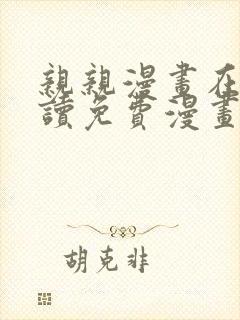 親親漫畫在
讀免費漫畫
胡克非